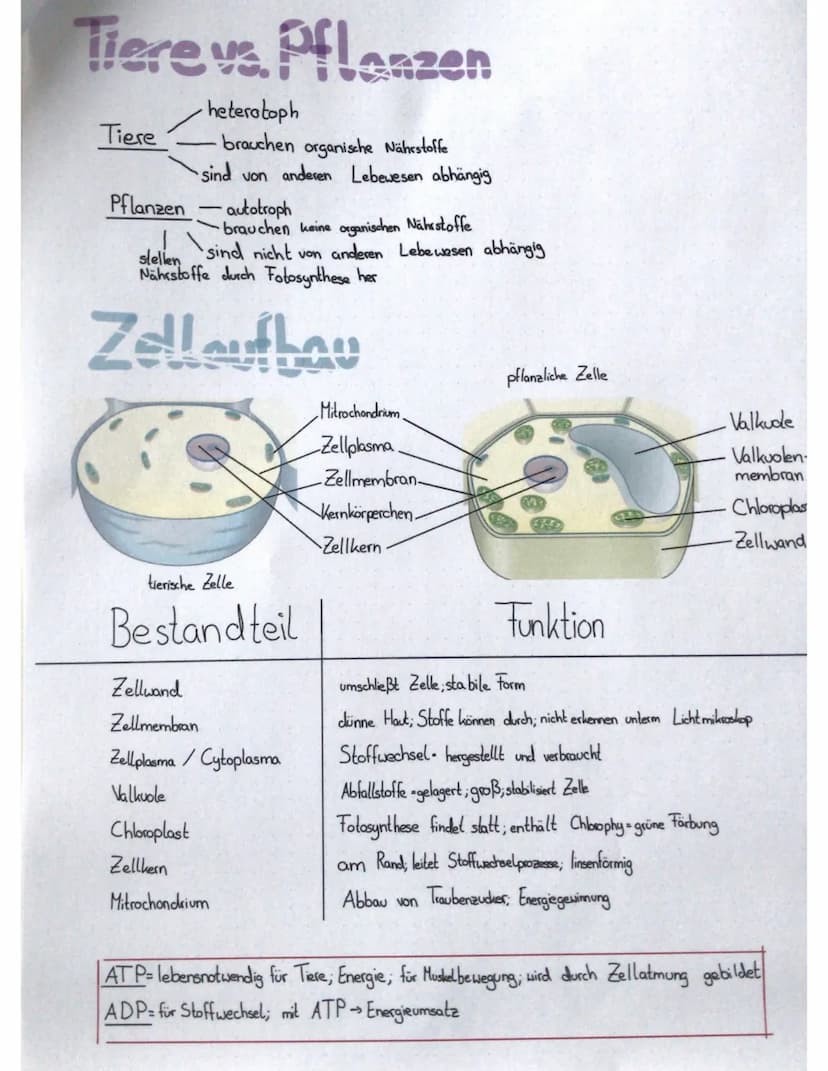 Tiere vs. Pflanzen
heterotoph
Tiere
brauchen organische Nährstoffe
sind von anderen Lebewesen abhängig
Pflanzen
autotroph
brauchen keine organischen Nährstoffe
sind nicht von anderen Lebewesen abhängig
stellen
Nährstoffe durch Fotosynthese her
Zellaufbau
pflanzliche Zelle
Mitrochondrium
Valkuole
Zellplasma
Valkuolen-
membran
Zellmembran
Kernkörperchen
Chloroplas
Zellkern
Zellwand
tierische Zelle
Bestandteil Funktion
Zellwand umschließt Zelle; stabile Form
Zellmembran dünne Haut; Stoffe können durch; nicht erkennen unterm Lichtmikroskop
Zellplasma / Cytoplasma Stoffwechsel • hergestellt und verbraucht
Valkuole Abfallstoffe • gelagert; groß; stabilisiert Zelle
Chloroplast Fotosynthese findet statt; enthält Chlorophy = grüne Färbung
Zellkern am Rand; leitet Stoffwechselprozesse; linsenförmig
Mitrochondrium Abbau von Traubenzucker; Energiegewinnung
ATP = lebensnotwendig für Tiere; Energie; für Muskelbewegung; wird durch Zellatmung gebildet
ADP = für Stoffwechsel; mit ATP → Energieumsatz